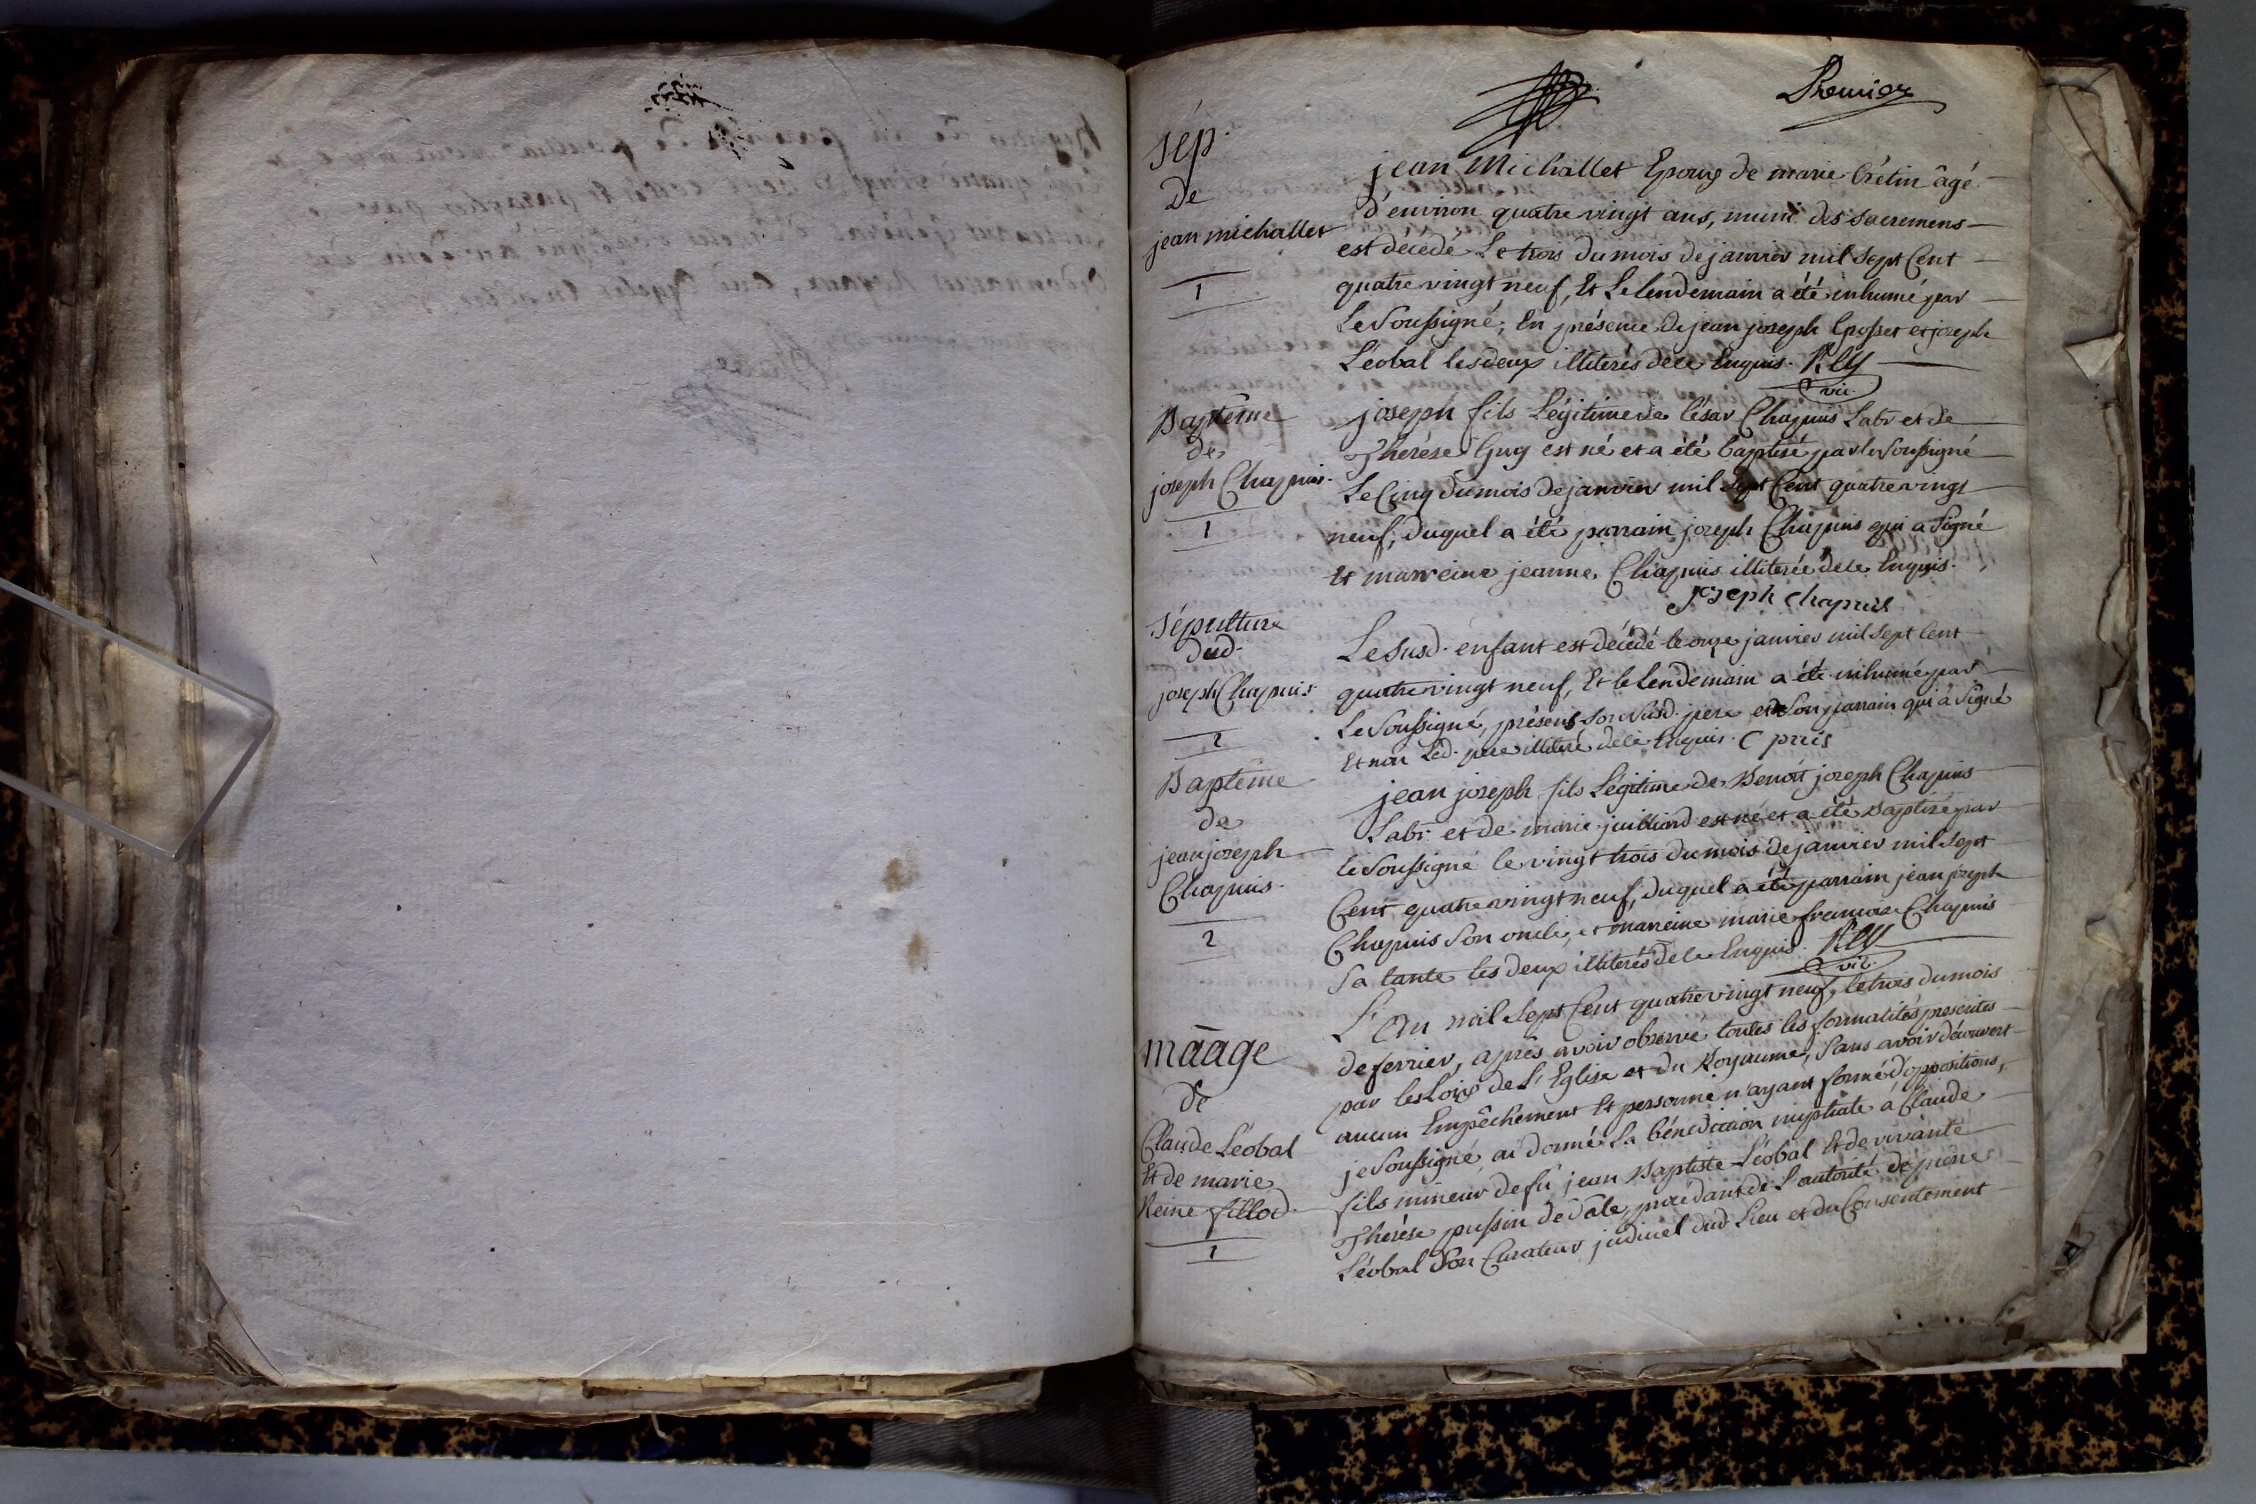 Premier
Sép.
de
jean michallet
1
jean Michallet Epoux de marie Crétin âgé
d'environ quatre vingt ans, muni des sacremens
est décédé Le trois du mois de janvier mil sept Cent
quatre vingt neuf, Et Le lendemain a été inhumé par
Le Soussigné, En présence de jean joseph Grosset et joseph
Léobal les deux illiterés de ce Enquis. Rey
vic.
Baptême
de
joseph Chapuis.
1
joseph fils Légitime de César Chapuis Labr et de
Thérèse Guy est né et a été baptisé par le Soussigné
Le Cinq du mois de janvier mil sept Cent quatre vingt
neuf, duquel a été parrain joseph Chapuis qui a Signé
Et marreine jeanne Chapuis illiterée de ce Enquis.
joseph chapuis
Sépulture
dud.
joseph Chapuis
2
Le Susd. enfant est décédé le onze janvier mil sept Cent
quatre vingt neuf, Et le Lendemain a été inhumé par
Le Soussigné, présens son Susd. pere et Son parrain qui a Signé
Et non Led. pere illiteré de ce Enquis. C puis
Baptême
de
jean joseph
Chapuis.
2
jean joseph fils Légitime de Benoit joseph Chapuis
Labr. et de marie juilliard est né et a été Baptisé par
le Soussigné le vingt trois du mois de janvier mil Sept
Cent quatre vingt neuf, duquel a été parrain jean joseph
Chapuis Son oncle, et marreine marie francoise Chapuis
Sa tante les deux illiterés de ce Enquis. Rey
vic.
maage
de
Claude Léobal
Et de marie
Reine fillod.
1
L'An mil Sept Cent quatre vingt neuf, le trois du mois
de fevrier, après avoir observé toutes les formalités prescrites
par les Loix de L'Eglise et du Royaume, Sans avoir découvert
aucun Empêchement Et personne n'ayant formé d'oppositions,
je Soussigné ai donné La bénédiction nuptiale à Claude
fils mineur de fû jean Baptiste Léobal Et de vivante
Thérèse de procédant de L'autorité de pierre
Léobal Son Curateur judiciel dud Lieu et du Consentement